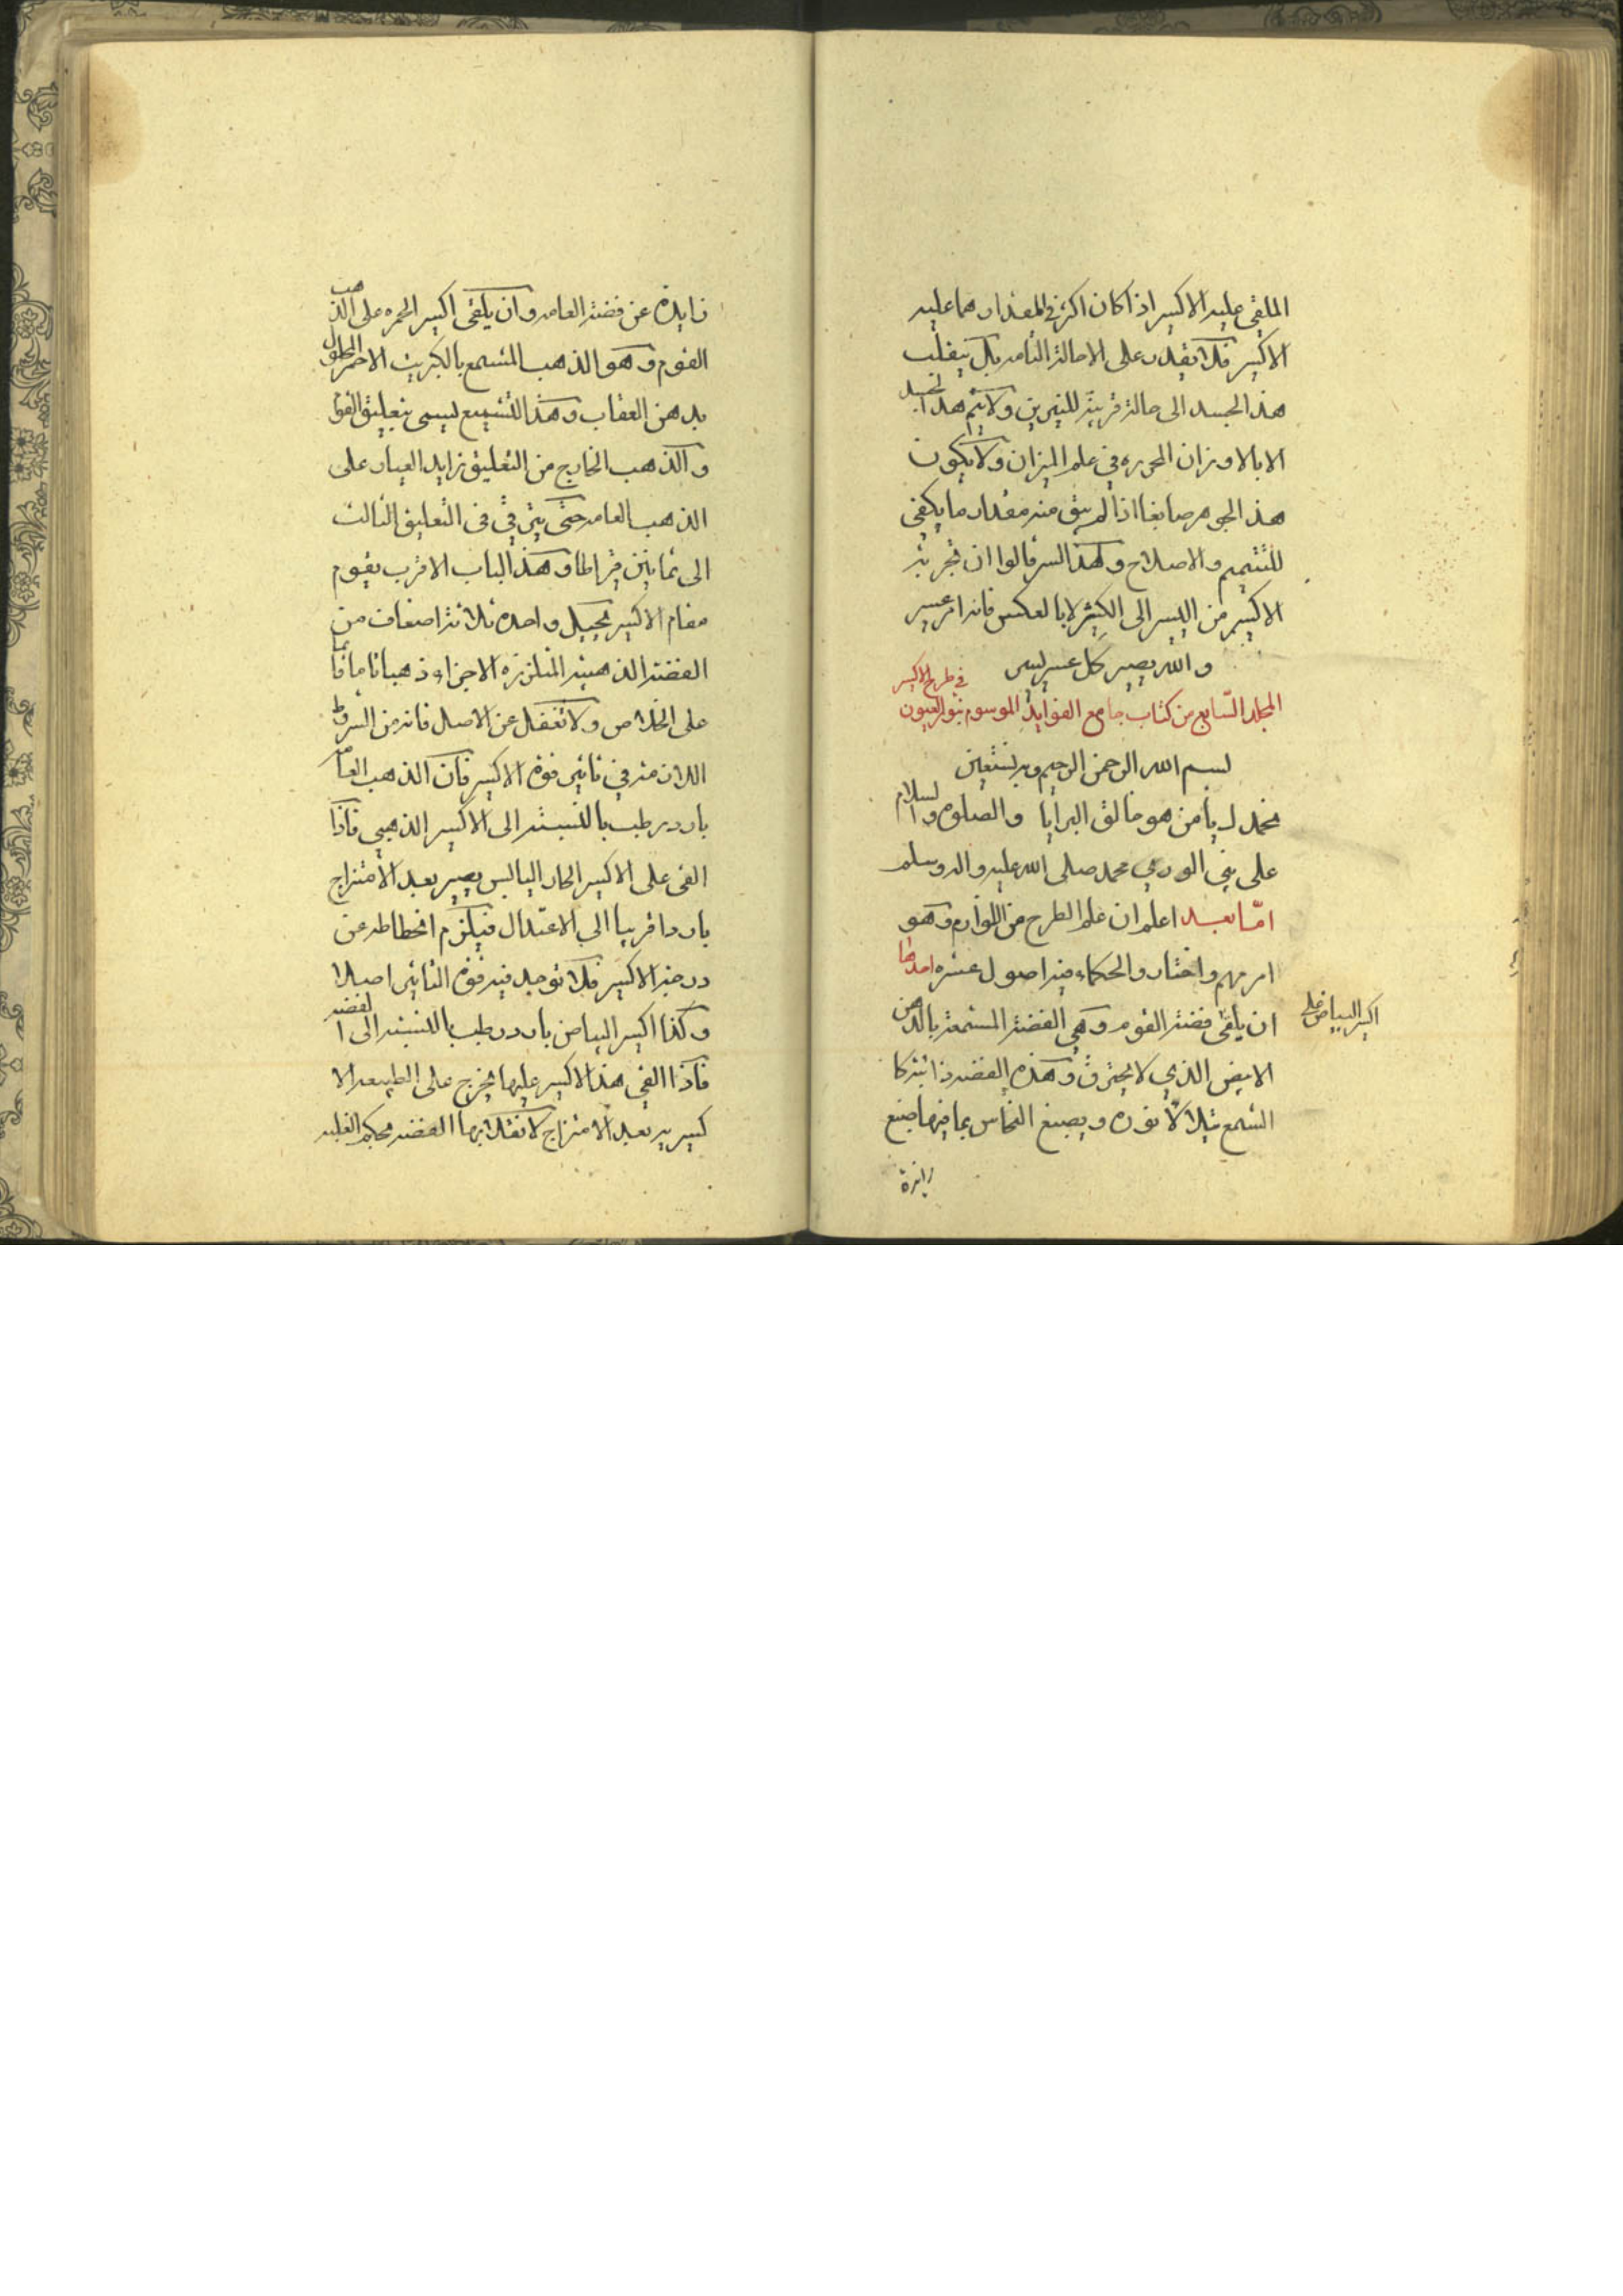 الملقى عليه الاكسير اذا كان اكثر في المقدار مما عليه
الاكسير فلا يقدر على الاحالة التامه بل ينقلب
هذ الجسد الى حالة قريبة للنيرين ولا يتم هذ الجسد
الا بالاوزان المحرره في علم الميزان ولا يكون
هذ الجوهر صابغا اذا لم يبق منه مقدار ما يكفى
للتتميم والاصلاح ولهذ السر قالوا ان تجربة
الاكسير من اليسر الى الكثير لا بالعكس فانه امر عسير
والله يصير كل عسير يسير
في طرح الاكسير
المجلد السّابع من كتاب جامع الفوايد الموسوم بنور العيون
بسم الله الرحمن الرحيم وبه نستعين
نحمدك يا من هو خالق البرايا والصلوه والسلام
على نبى الورى محمد صلى الله عليه واله وسلم
امّا بعد اعلم ان علم الطرح من اللوازم وهو
امر مهم واختاروا الحكماء فيه اصول عشره احدها
ان يلقى فضة القوم وهي الفضة المشمعة بالدهن
اكسير البياض على
الابيض الذي لا يحترق وهذه الفضه ذائبة كا
الشمع تيلالا نوره ويصبغ النحاس بما فيها صبغ
زايدة
زايدة عن فضة العامه وان يلقى اكسير الحمره على الذهب
القوم وهو الذهب المشمع بالكبريت الاحمر المحلول
بدهن العقاب وهذ التشميع يسمى بتعليق القوم
والذهب الخارج من التعليق زايد العيار على
الذهب العامه حتى يترقى في التعليق الثالث
الى ثمانين قيراطا وهذ الباب الاقرب يقوم
مقام الاكسير يحيل واحده ثلاثة اضعاف من
الفضة الذهبية المتلززه الاجزاء ذهبا تاما قائما
على الخلاص ولا تغفل عن الاصل فانه من الشروط
اللازمه في تاثير قوة الاكسير فان الذهب العامه
بارد رطب بالنسبة الى الاكسير الذهبي فاذا
القى على الاكسير الحار اليابس يصير بعد الامتزاج
باردا قريبا الى الاعتدال فيلزم انحطاطه عن
درجة الاكسير فلا توجد فيه قوة التاثير اصلا
وكذا اكسير البياض بارد رطب بالنسبة الى الفضه
فاذا القى هذ الاكسير عليها يخرج على الطبيعه الا
كسيريه بعد الامتزاج لانقلابها الفضه بحكم الغلبه